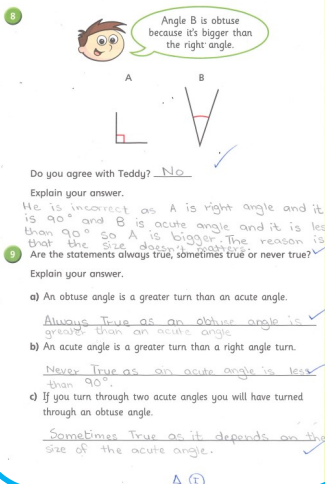 8
Angle B is obtuse
because it's bigger than
the right angle.
A
B
Do you agree with Teddy? No
Explain your answer.
He is incorrect as A is right angle and it
is 90° and B is acute angle and it is les
than 90° so A is bigger. The reason is
that the size doesn't matters.
9
Are the statements always true, sometimes true or never true?
Explain your answer.
a) An obtuse angle is a greater turn than an acute angle.
Always True as an obtuse angle is
greater than an acute angle
b) An acute angle is a greater turn than a right angle turn.
Never True as an acute angle is less
than 90°.
c) If you turn through two acute angles you will have turned
through an obtuse angle.
Sometimes True as it depends on the
size of the acute angle.
A